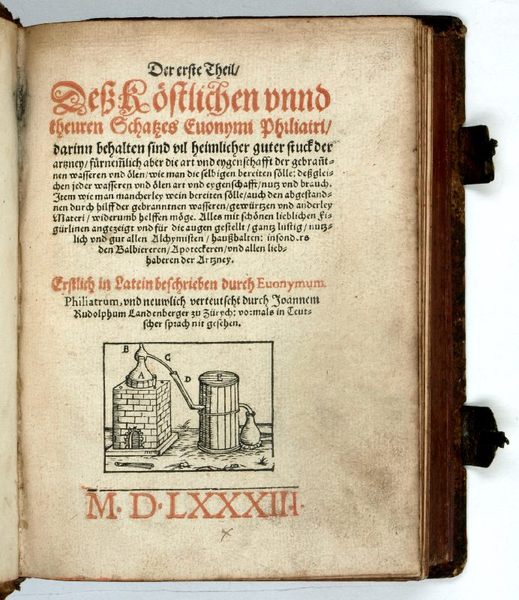 Der erste Theil/
Deß Köstlichen vnnd
theuren Schatzes Euonymi Philiatri/
darinn behalten sind vil heimlicher guter stuck der
artzney/ fürnem̃lich aber die art vnd eygenschafft der gebrañt-
nen wasseren vnd ölen/ wie man die selbigen bereiten sölle: deßglei-
chen jeder wasseren vnd ölen art vnd eygenschafft/ nutz vnd brauch.
Item wie man mancherley wein bereiten sölle/ auch den abgestand-
nen durch hilff der gebranntnen wasseren/ gewürtzen vnd anderley
Materi/ widerumb helffen möge. Alles mit schönen lieblichen Fi-
gürlinen angezeigt vnd für die augen gestellt/ gantz lustig/ nutz-
lich vnd gut allen Alchymisten/ haußhalten: insond.rs
den Balbiereren/ Apoteckeren/ vnd allen lieb-
haberen der Artzney.
Erstlich in Latein beschrieben durch Euonymum
Philiatrum, vnd neuwlich verteutscht durch Joannem
Rudolphum Landenberger zu Zürych: vormals in Teut-
scher sprach nit gesehen.
A B C D E
M. D. LXXXIII.